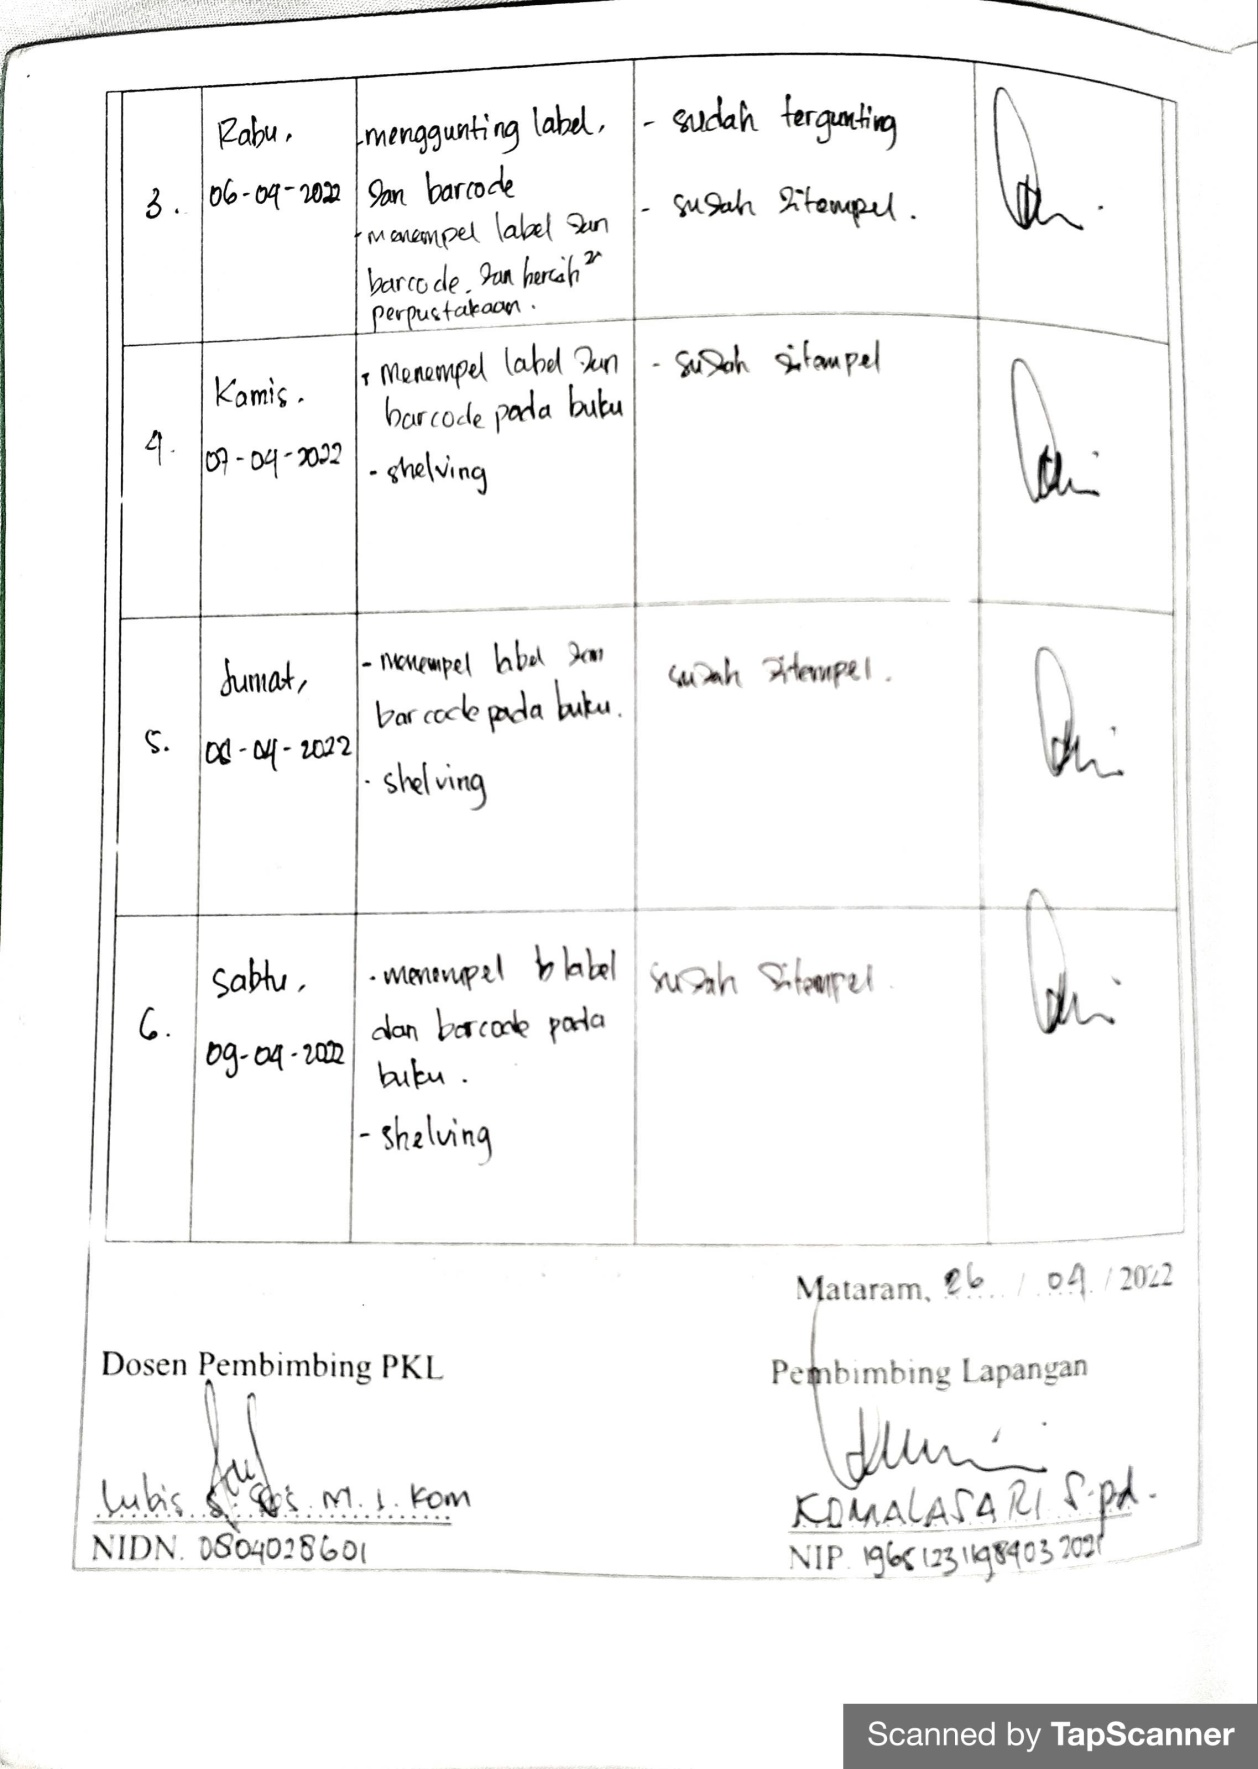 3.
Rabu,
06-04-2022
- menggunting label,
dan barcode
- menempel label dan
barcode. dan bersih2
perpustakaan.
- sudah tergunting
- sudah ditempel.
4.
Kamis.
07-04-2022
- Menempel label dan
barcode pada buku
- shelving
- sudah ditempel
5.
Jumat,
08-04-2022
- menempel label dan
barcode pada buku.
- shelving
sudah ditempel.
6.
Sabtu,
09-04-2022
- menempel label
dan barcode pada
buku.
- shelving
sudah ditempel.
Mataram, 26 / 04 / 2022
Dosen Pembimbing PKL
Pembimbing Lapangan
Lubis M. I. Kom
KOMALASARI S.pd.
NIDN. 0804028601
NIP.
Scanned by TapScanner